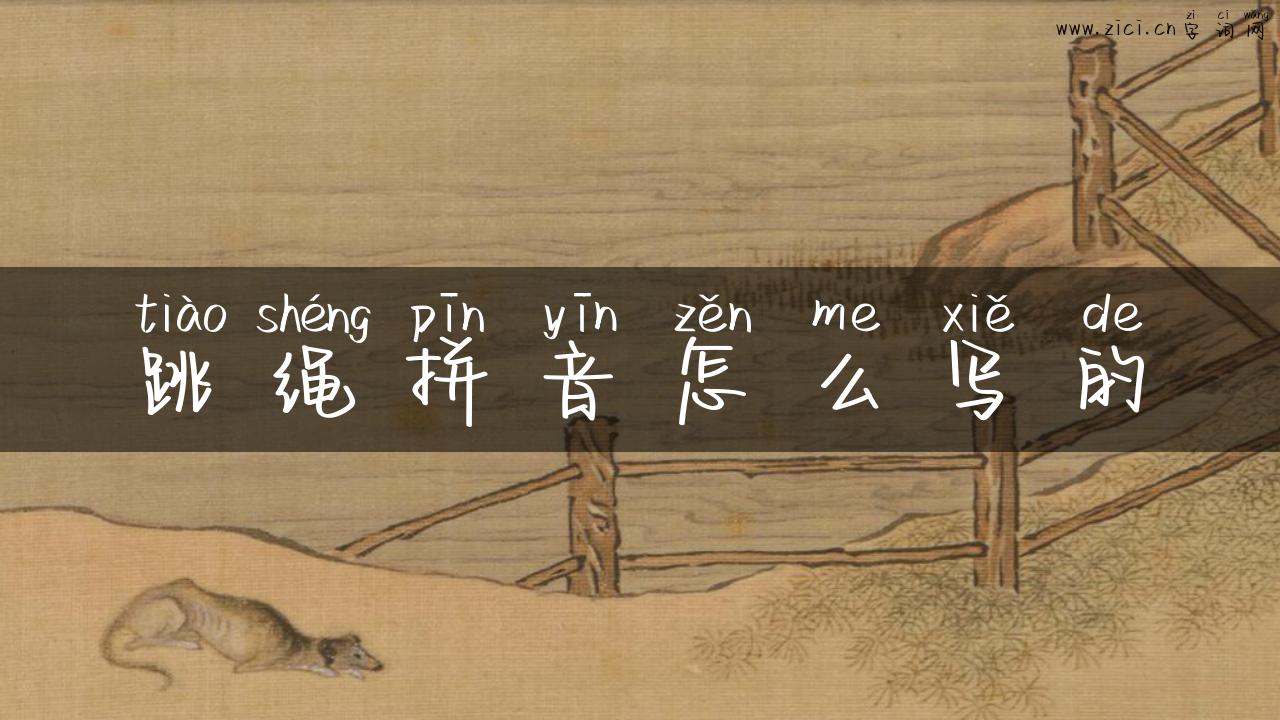 zì cí wǎng
www.zici.cn 字词网
tiào shéng pīn yīn zěn me xiě de
跳绳拼音怎么写的